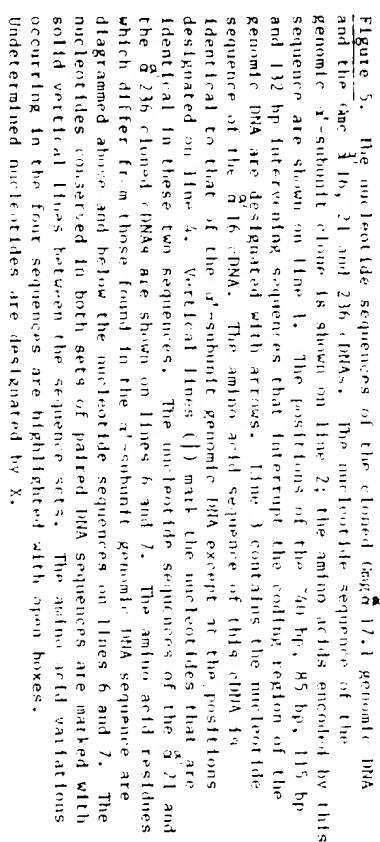 Figure 5. The nucleotide sequences of the cloned Gmg 17.1 genomic DNA
and the Gmc 16, 21 and 236 cDNAs. The nucleotide sequence of the
genomic α'-subunit clone is shown on line 2; the amino acids encoded by this
sequence are shown on line 1. The positions of the ~40 bp, 85 bp, 115 bp
and 132 bp intervening sequences that interrupt the coding region of the
genomic DNA are designated with arrows. Line 3 contains the nucleotide
sequence of the 16 cDNA. The amino acid sequence of this cDNA is
identical to that of the α'-subunit genomic DNA except at the positions
designated on line 4. Vertical lines (|) mark the nucleotides that are
identical in these two sequences. The nucleotide sequences of the 21 and
the 236 cloned cDNAs are shown on lines 6 and 7. The amino acid residues
which differ from those found in the α'-subunit genomic DNA sequence are
diagrammed above and below the nucleotide sequences on lines 6 and 7. The
nucleotides conserved in both sets of paired DNA sequences are marked with
solid vertical lines between the sequence sets. The amino acid variations
occurring in the four sequences are highlighted with open boxes.
Undetermined nucleotides are designated by X.